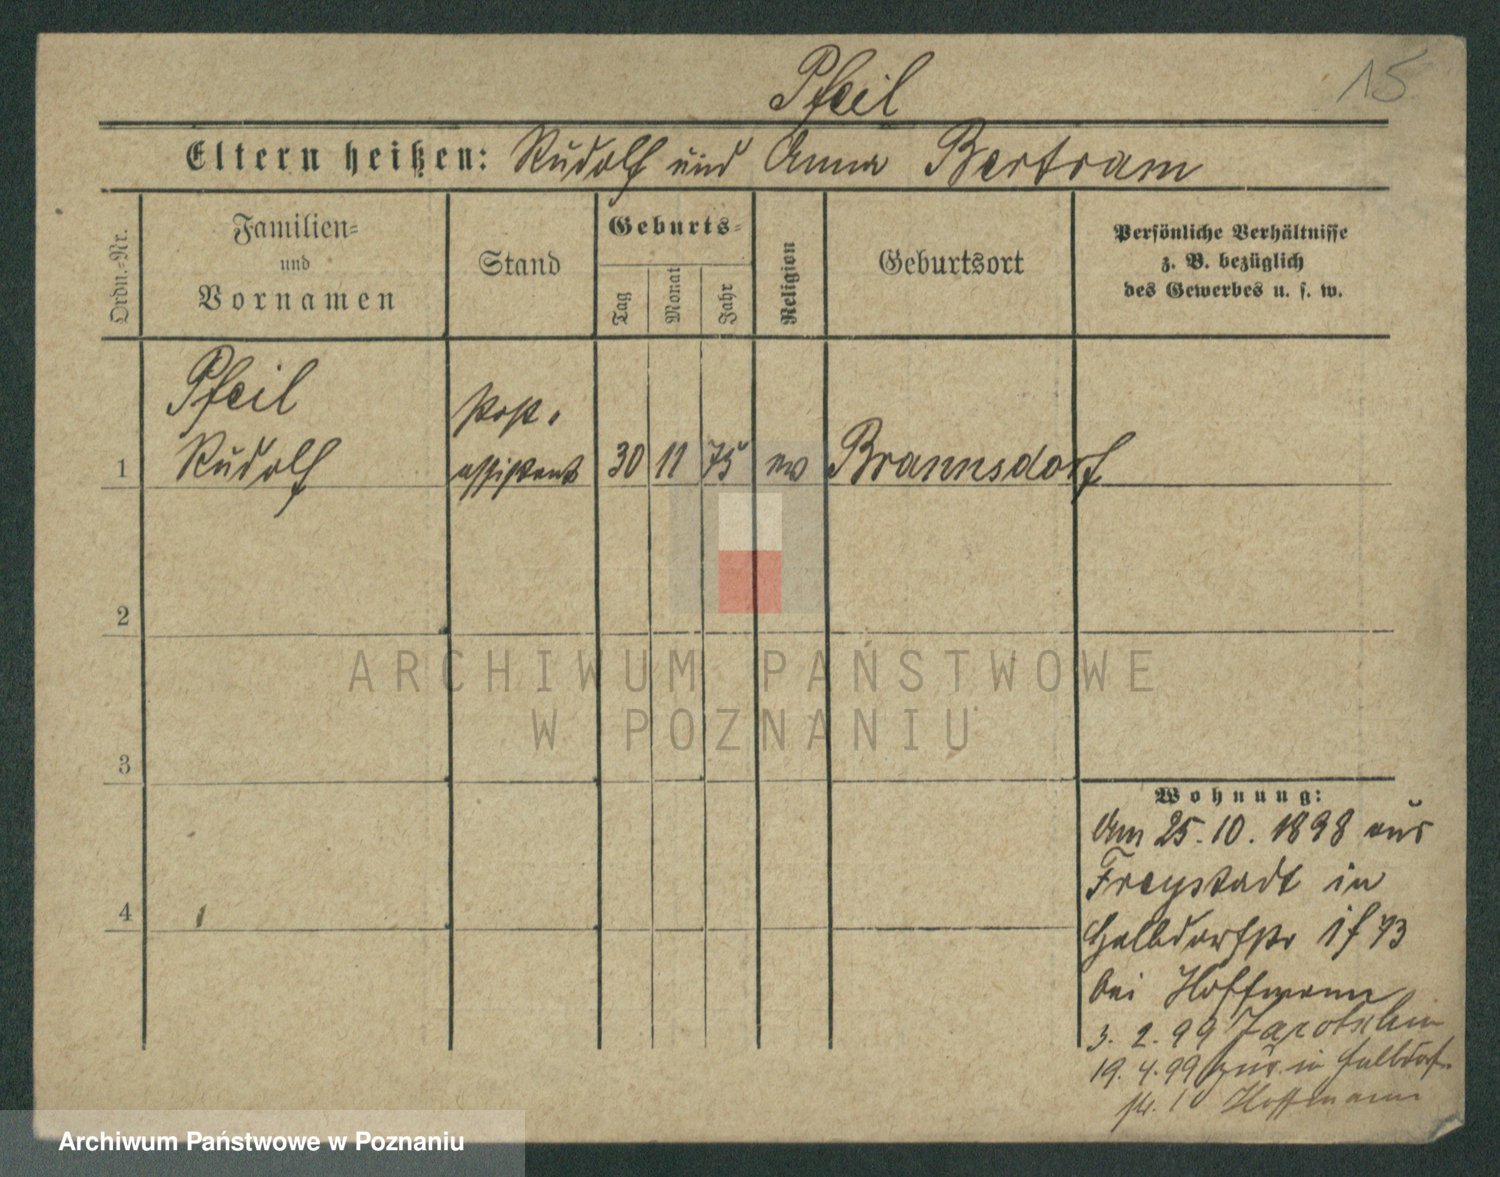 15
Pfeil
Eltern heißen: Rudolf und Anna Bertram
Ordn.-Nr.
Familien-
und
Vornamen
Stand
Geburts-
Tag
Monat
Jahr
Religion
Geburtsort
Persönliche Verhältnisse
z. B. bezüglich
des Gewerbes u. s. w.
Pfeil
Post-
1 Rudolf assistent 30 11 75 ev Braunsdorf
2
3
4
Wohnung:
Am 25.10.1898 aus
Freystadt in
Halbdorfstr 1
bei Hoffmann
3. 2. 99 Jarotschin
19. 4. 99 zur. in Halbdorf-
str. 1 Hoffmann
ARCHIWUM PAŃSTWOWE
W POZNANIU
Archiwum Państwowe w Poznaniu